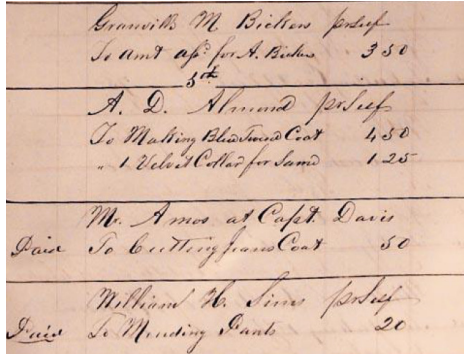 Granvill M Bickers pr Self
To Amt asd for A. Bickers 3 50
5th
A. D. Almond pr Self
To Making Blue Tweed Coat 4 50
" 1 Velvet Collar for Same 1 25
Mr. Amos at Capt. Davis
Paid To Cutting Jeans Coat 50
William H. Sims pr Self
Paid To Mending Pants 20